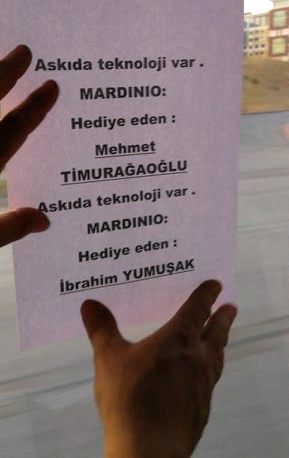 Askıda teknoloji var .
MARDINIO:
Hediye eden :
Mehmet
TİMURAĞAOĞLU
Askıda teknoloji var .
MARDINIO:
Hediye eden :
İbrahim YUMUŞAK